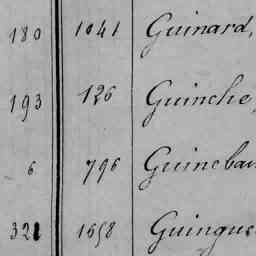 180 1041 Guinard,
193 126 Guinche,
6 796 Guineba
321 1658 Guingue